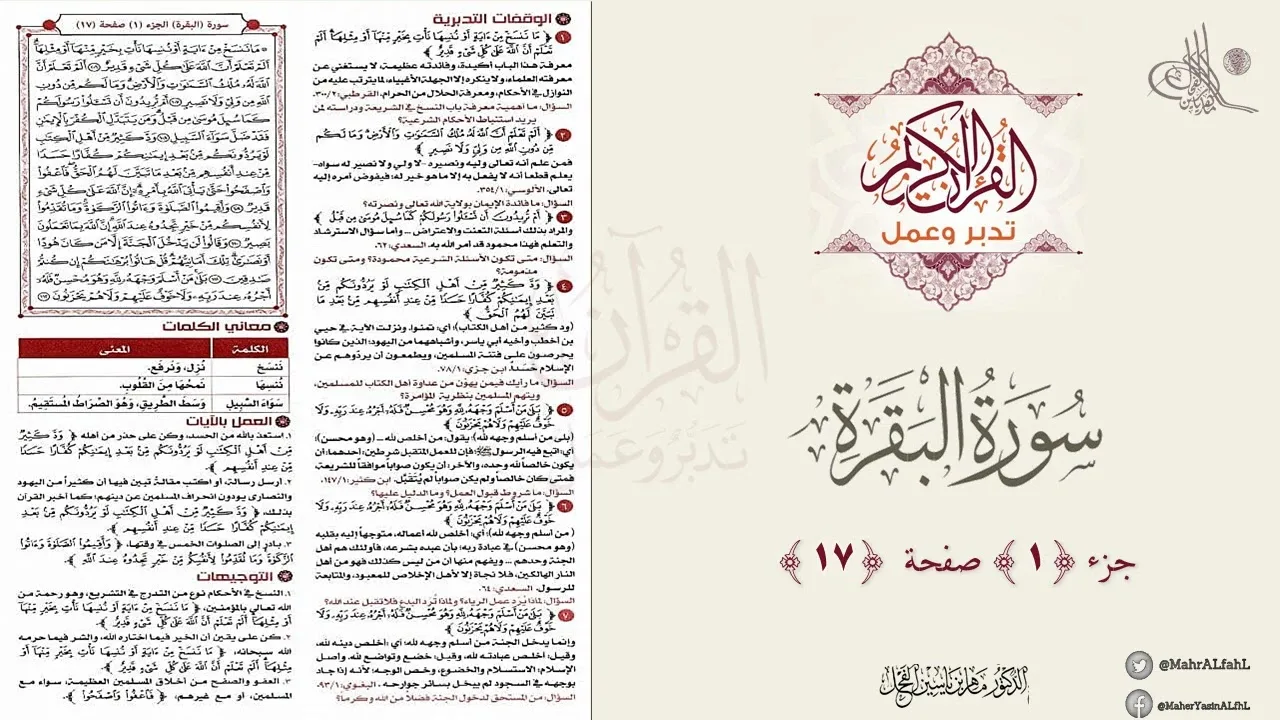 سورة (البقرة) الجزء (١) صفحة (١٧)
۞ مَا نَنسَخْ مِنْ ءَايَةٍ أَوْ نُنسِهَا نَأْتِ بِخَيْرٍ مِّنْهَآ أَوْ مِثْلِهَآ
أَلَمْ تَعْلَمْ أَنَّ ٱللَّهَ عَلَىٰ كُلِّ شَىْءٍ قَدِيرٌ ١٠٦ أَلَمْ تَعْلَمْ أَنَّ
ٱللَّهَ لَهُۥ مُلْكُ ٱلسَّمَـٰوَٰتِ وَٱلْأَرْضِ وَمَا لَكُم مِّن دُونِ
ٱللَّهِ مِن وَلِىٍّ وَلَا نَصِيرٍ ١٠٧ أَمْ تُرِيدُونَ أَن تَسْـَٔلُوا۟ رَسُولَكُمْ
كَمَا سُئِلَ مُوسَىٰ مِن قَبْلُ وَمَن يَتَبَدَّلِ ٱلْكُفْرَ بِٱلْإِيمَـٰنِ
فَقَدْ ضَلَّ سَوَآءَ ٱلسَّبِيلِ ١٠٨ وَدَّ كَثِيرٌ مِّنْ أَهْلِ ٱلْكِتَـٰبِ
لَوْ يَرُدُّونَكُم مِّنۢ بَعْدِ إِيمَـٰنِكُمْ كُفَّارًا حَسَدًا
مِّنْ عِندِ أَنفُسِهِم مِّنۢ بَعْدِ مَا تَبَيَّنَ لَهُمُ ٱلْحَقُّ فَٱعْفُوا۟
وَٱصْفَحُوا۟ حَتَّىٰ يَأْتِىَ ٱللَّهُ بِأَمْرِهِۦٓ إِنَّ ٱللَّهَ عَلَىٰ كُلِّ شَىْءٍ
قَدِيرٌ ١٠٩ وَأَقِيمُوا۟ ٱلصَّلَوٰةَ وَءَاتُوا۟ ٱلزَّكَوٰةَ وَمَا تُقَدِّمُوا۟
لِأَنفُسِكُم مِّنْ خَيْرٍ تَجِدُوهُ عِندَ ٱللَّهِ إِنَّ ٱللَّهَ بِمَا تَعْمَلُونَ
بَصِيرٌ ١١٠ وَقَالُوا۟ لَن يَدْخُلَ ٱلْجَنَّةَ إِلَّا مَن كَانَ هُودًا
أَوْ نَصَـٰرَىٰ تِلْكَ أَمَانِيُّهُمْ قُلْ هَاتُوا۟ بُرْهَـٰنَكُمْ إِن كُنتُمْ
صَـٰدِقِينَ ١١١ بَلَىٰ مَنْ أَسْلَمَ وَجْهَهُۥ لِلَّهِ وَهُوَ مُحْسِنٌ فَلَهُۥٓ
أَجْرُهُۥ عِندَ رَبِّهِۦ وَلَا خَوْفٌ عَلَيْهِمْ وَلَا هُمْ يَحْزَنُونَ ١١٢
معاني الكلمات
الكلمة المعنى
نَنسَخْ نُزِل، وَنَرفَع.
نُنسِهَا نَمحُهَا مِنَ القُلُوبِ.
سَوَاءَ السَّبِيلِ وَسَطَ الطَّرِيقِ، وَهُوَ الصِّرَاطُ المُستَقِيمُ.
العمل بالآيات
١. استعذ بالله من الحسد، وكن على حذر من أهله ﴿ وَدَّ كَثِيرٌ
مِّنْ أَهْلِ ٱلْكِتَـٰبِ لَوْ يَرُدُّونَكُم مِّنۢ بَعْدِ إِيمَـٰنِكُمْ كُفَّارًا حَسَدًا
مِّنْ عِندِ أَنفُسِهِم ﴾.
٢. أرسل رسالة، أو اكتب مقالة تبين فيها أن كثيراً من اليهود
والنصارى يودون انحراف المسلمين عن دينهم؛ كما أخبر القرآن
بذلك، ﴿ وَدَّ كَثِيرٌ مِّنْ أَهْلِ ٱلْكِتَـٰبِ لَوْ يَرُدُّونَكُم مِّنۢ بَعْدِ
إِيمَـٰنِكُمْ كُفَّارًا حَسَدًا مِّنْ عِندِ أَنفُسِهِم ﴾.
٣. بادر إلى الصلوات الخمس في وقتها، ﴿ وَأَقِيمُوا۟ ٱلصَّلَوٰةَ وَءَاتُوا۟
ٱلزَّكَوٰةَ وَمَا تُقَدِّمُوا۟ لِأَنفُسِكُم مِّنْ خَيْرٍ تَجِدُوهُ عِندَ ٱللَّهِ ﴾.
التوجيهات
١. النسخ في الأحكام نوع من التدرج في التشريع، وهو رحمة من
الله تعالى بالمؤمنين، ﴿ مَا نَنسَخْ مِنْ ءَايَةٍ أَوْ نُنسِهَا نَأْتِ بِخَيْرٍ مِّنْهَآ
أَوْ مِثْلِهَآ أَلَمْ تَعْلَمْ أَنَّ ٱللَّهَ عَلَىٰ كُلِّ شَىْءٍ قَدِيرٌ ﴾.
٢. كن على يقين أن الخير فيما اختاره الله، والشر فيما حرمه
الله سبحانه، ﴿ مَا نَنسَخْ مِنْ ءَايَةٍ أَوْ نُنسِهَا نَأْتِ بِخَيْرٍ مِّنْهَآ أَوْ
مِثْلِهَآ أَلَمْ تَعْلَمْ أَنَّ ٱللَّهَ عَلَىٰ كُلِّ شَىْءٍ قَدِيرٌ ﴾.
٣. العفو والصفح من أخلاق المسلمين العظيمة، سواء مع
المسلمين، أو مع غيرهم، ﴿ فَٱعْفُوا۟ وَٱصْفَحُوا۟ ﴾.
الوقفات التدبرية
١ ﴿ مَا نَنسَخْ مِنْ ءَايَةٍ أَوْ نُنسِهَا نَأْتِ بِخَيْرٍ مِّنْهَآ أَوْ مِثْلِهَآ أَلَمْ
تَعْلَمْ أَنَّ ٱللَّهَ عَلَىٰ كُلِّ شَىْءٍ قَدِيرٌ ﴾
معرفة هذا الباب أكيدة، وفائدته عظيمة، لا يستغني عن
معرفته العلماء، ولا ينكره إلا الجهلة الأغبياء، لما يترتب عليه من
النوازل في الأحكام، ومعرفة الحلال من الحرام. القرطبي: ٣٠٠/٢.
السؤال: ما أهمية معرفة باب النسخ في الشريعة ودراسته لمن
يريد استنباط الأحكام الشرعية؟
٢ ﴿ أَلَمْ تَعْلَمْ أَنَّ ٱللَّهَ لَهُۥ مُلْكُ ٱلسَّمَـٰوَٰتِ وَٱلْأَرْضِ وَمَا لَكُم
مِّن دُونِ ٱللَّهِ مِن وَلِىٍّ وَلَا نَصِيرٍ ﴾
فمن علم أنه تعالى وليه ونصيره -لا ولي ولا نصير له سواه-
يعلم قطعا أنه لا يفعل به إلا ما هو خير له؛ فيفوض أمره إليه
تعالى. الألوسي: ٣٥٤/١.
السؤال: ما فائدة الإيمان بولاية الله تعالى ونصرته؟
٣ ﴿ أَمْ تُرِيدُونَ أَن تَسْـَٔلُوا۟ رَسُولَكُمْ كَمَا سُئِلَ مُوسَىٰ مِن قَبْلُ ﴾
والمراد بذلك أسئلة التعنت والاعتراض ... وأما سؤال الاسترشاد
والتعلم فهذا محمود قد أمر الله به. السعدي: ٦٢.
السؤال: متى تكون الأسئلة الشرعية محمودة؟ ومتى تكون
مذمومة؟
٤ ﴿ وَدَّ كَثِيرٌ مِّنْ أَهْلِ ٱلْكِتَـٰبِ لَوْ يَرُدُّونَكُم مِّنۢ
بَعْدِ إِيمَـٰنِكُمْ كُفَّارًا حَسَدًا مِّنْ عِندِ أَنفُسِهِم مِّنۢ بَعْدِ مَا
تَبَيَّنَ لَهُمُ ٱلْحَقُّ ﴾
(ود كثير من أهل الكتاب)؛ أي: تمنوا، ونزلت الآية في حيي
بن أخطب وأخيه أبي ياسر، وأشباههما من اليهود؛ الذين كانوا
يحرصون على فتنة المسلمين، ويطمعون أن يردّوهم عن
الإسلام حَسَداً. ابن جزي: ٧٨/١.
السؤال: ما رأيك فيمن يهوّن من عداوة أهل الكتاب للمسلمين،
ويتهم المسلمين بنظرية المؤامرة؟
٥ ﴿ بَلَىٰ مَنْ أَسْلَمَ وَجْهَهُۥ لِلَّهِ وَهُوَ مُحْسِنٌ فَلَهُۥٓ أَجْرُهُۥ عِندَ رَبِّهِۦ وَلَا
خَوْفٌ عَلَيْهِمْ وَلَا هُمْ يَحْزَنُونَ ﴾
(بلى من أسلم وجهه لله): يقول: من أخلص لله ... (وهو محسن):
أي: اتبع فيه الرسول ﷺ؛ فإن للعمل المتقبل شرطين: أحدهما: أن
يكون خالصاً لله وحده، والآخر: أن يكون صواباً موافقاً للشريعة
فمتى كان خالصاً ولم يكن صواباً لم يُتَقَبَّل. ابن كثير: ١٤٧/١.
السؤال: ما شروط قبول العمل؟ وما الدليل عليها؟
٦ ﴿ بَلَىٰ مَنْ أَسْلَمَ وَجْهَهُۥ لِلَّهِ وَهُوَ مُحْسِنٌ فَلَهُۥٓ أَجْرُهُۥ عِندَ رَبِّهِۦ وَلَا
خَوْفٌ عَلَيْهِمْ وَلَا هُمْ يَحْزَنُونَ ﴾
( من أسلم وجهه لله)؛ أي: أخلص لله أعماله، متوجهاً إليه بقلبه
(وهو محسن) في عبادة ربه؛ بأن عبده بشرعه، فأولئك هم أهل
الجنة وحدهم ... ويفهم منها أن من ليس كذلك فهو من أهل
النار الهالكين، فلا نجاة إلا لأهل الإخلاص للمعبود، والمتابعة
للرسول. السعدي: ٦٤.
السؤال: لماذا يُرَد عمل الرياء؟ ولماذا تُرَد البدع فلا تقبل عند الله؟
٧ ﴿ بَلَىٰ مَنْ أَسْلَمَ وَجْهَهُۥ لِلَّهِ وَهُوَ مُحْسِنٌ فَلَهُۥٓ أَجْرُهُۥ عِندَ رَبِّهِۦ وَلَا
خَوْفٌ عَلَيْهِمْ وَلَا هُمْ يَحْزَنُونَ ﴾
وإنما يدخل الجنة من أسلم وجهه لله؛ أي: أخلص دينه لله،
وقيل: أخلص عبادته لله، وقيل: خضع وتواضع لله. وأصل
الإسلام: الاستسلام والخضوع، وخص الوجه؛ لأنه إذا جاد
بوجهه في السجود لم يبخل بسائر جوارحه. البغوي: ٩٣/١.
السؤال: من المستحق لدخول الجنة فضلاً من الله وكرماً؟
القرآن الكريم
تدبر وعمل
سورة البقرة
جزء ﴿ ١ ﴾ صفحة ﴿ ١٧ ﴾
الدكتور ماهر ياسين الفحل
@MahrALfahL
@MaherYasinALfhL
القرآن
تدبر وعمل